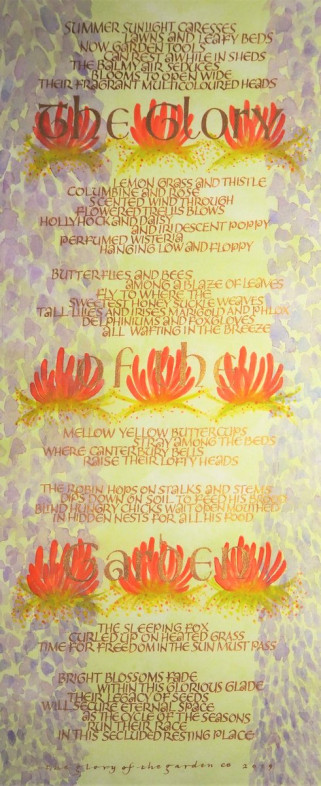 SUMMER SUNLIGHT CARESSES
LAWNS AND LEAFY BEDS
NOW GARDEN TOOLS
CAN REST AWHILE IN SHEDS
THE BALMY AIR SEDUCES
BLOOMS TO OPEN WIDE
THEIR FRAGRANT MULTICOLOURED HEADS
The Glory
LEMON GRASS AND THISTLE
COLUMBINE AND ROSE
SCENTED WIND THROUGH
FLOWERED TRELLIS BLOWS
HOLLYHOCK AND DAISY
AND IRIDESCENT POPPY
PERFUMED WISTERIA
HANGING LOW AND FLOPPY
BUTTERFLIES AND BEES
AMONG A BLAZE OF LEAVES
FLY TO WHERE THE
SWEETEST HONEY SUCKLE WEAVES
TALL LILIES AND IRISES MARIGOLD AND PHLOX
DELPHINIUMS AND FOXGLOVES
ALL WAFTING IN THE BREEZE
of the
MELLOW YELLOW BUTTERCUPS
STRAY AMONG THE BEDS
WHERE CANTERBURY BELLS
RAISE THEIR LOFTY HEADS
THE ROBIN HOPS ON STALKS AND STEMS
DIPS DOWN ON SOIL TO FEED HIS BROOD
BLIND HUNGRY CHICKS WAIT OPEN MOUTHED
IN HIDDEN NESTS FOR ALL HIS FOOD
Garden
THE SLEEPING FOX
CURLED UP ON HEATED GRASS
TIME FOR FREEDOM IN THE SUN MUST PASS
BRIGHT BLOSSOMS FADE
WITHIN THIS GLORIOUS GLADE
THEIR LEGACY OF SEEDS
WILL SECURE ETERNAL SPACE
AS THE CYCLE OF THE SEASONS
RUN THEIR RACE
IN THIS SECLUDED RESTING PLACE
The Glory of the garden